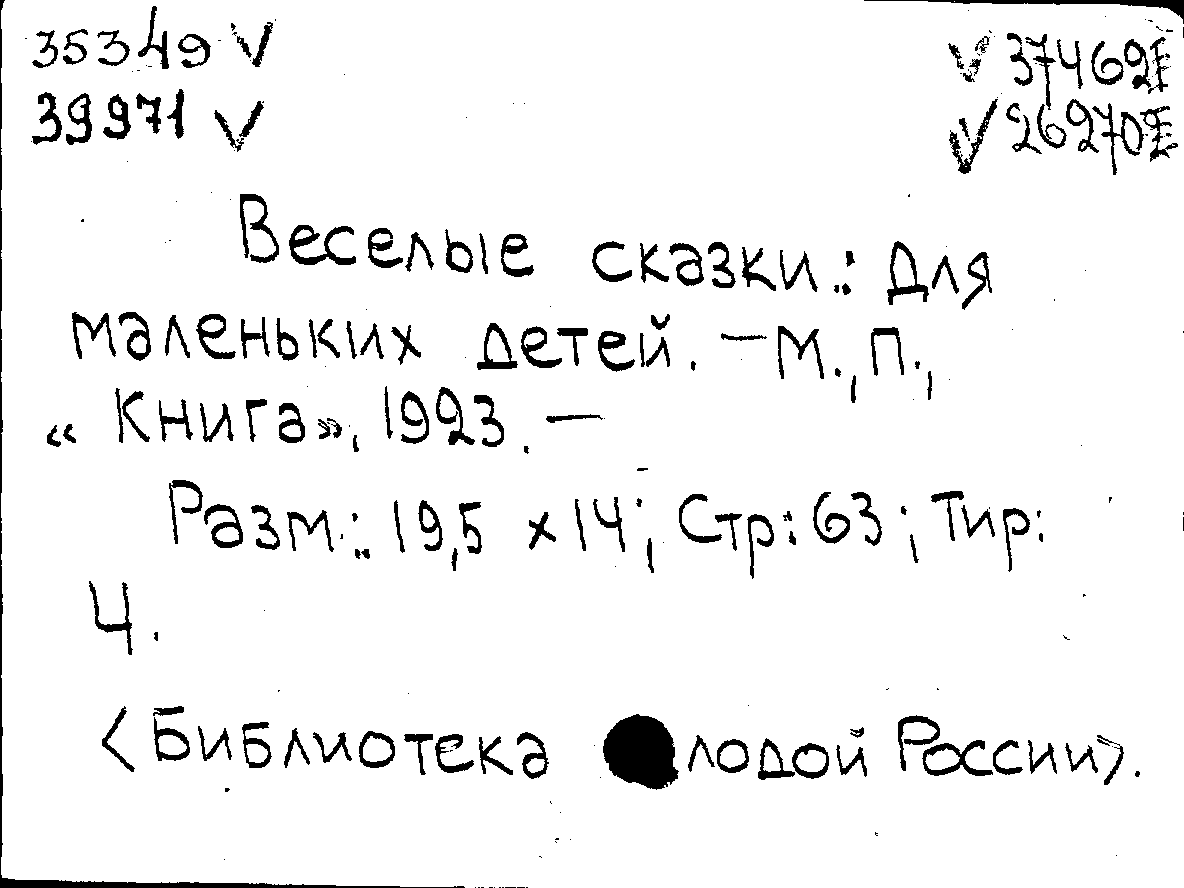 35349 ✓ ✓ 37462E
39971 ✓ ✓ 26270E
Веселые сказки.: Для
маленьких детей. – М., П.,
«Книга», 1923. –
Разм.: 19,5 х 14; Стр: 63; Тир:
4.
<Библиотека лодой России>.